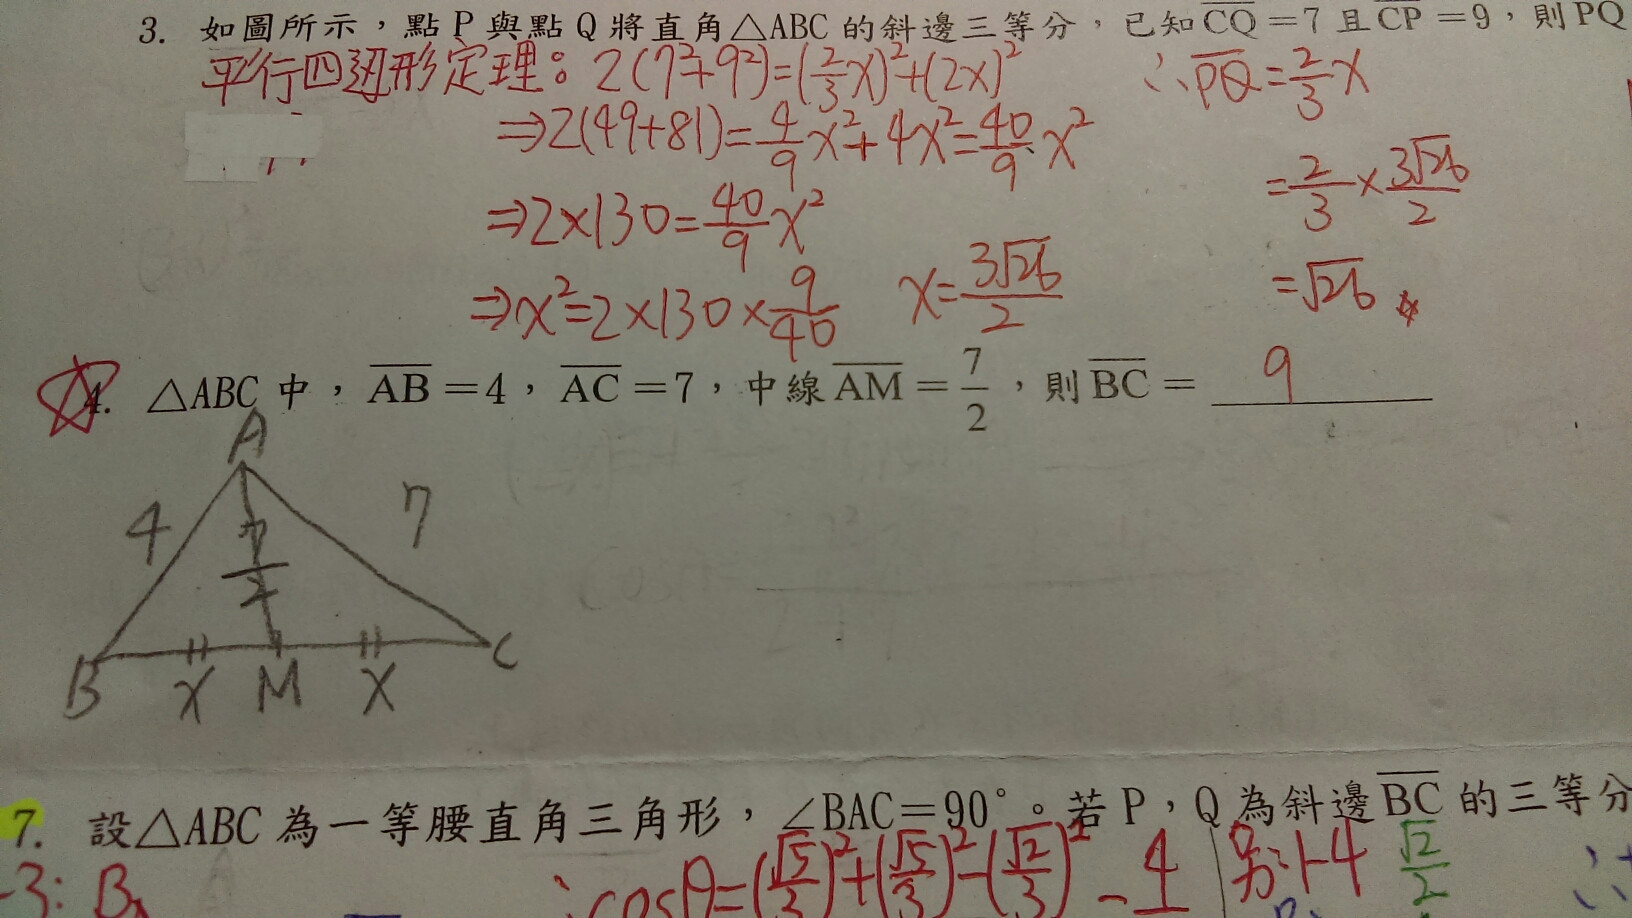 3. 如圖所示，點 P 與點 Q 將直角△ABC 的斜邊三等分，已知 CQ =7 且 CP =9，則 PQ
平行四邊形定理：2(7²+9²)=(2/3x)²+(2x)²
∴PQ=2/3x
⇒2(49+81)=4/9x²+4x²=40/9x²
=2/3×3√26/2
⇒2×130=40/9x²
⇒x²=2×130×9/40
x=3√26/2
=√26
4. △ABC 中，AB =4，AC =7，中線 AM = 7/2，則 BC = 9
A
4
7
7/2
B
x
M
x
C
7. 設△ABC 為一等腰直角三角形，∠BAC=90°。若 P，Q 為斜邊 BC 的三等分
∴cosθ=(√5/3)²+(√5/3)²-(√2/3)²
4
√2/2